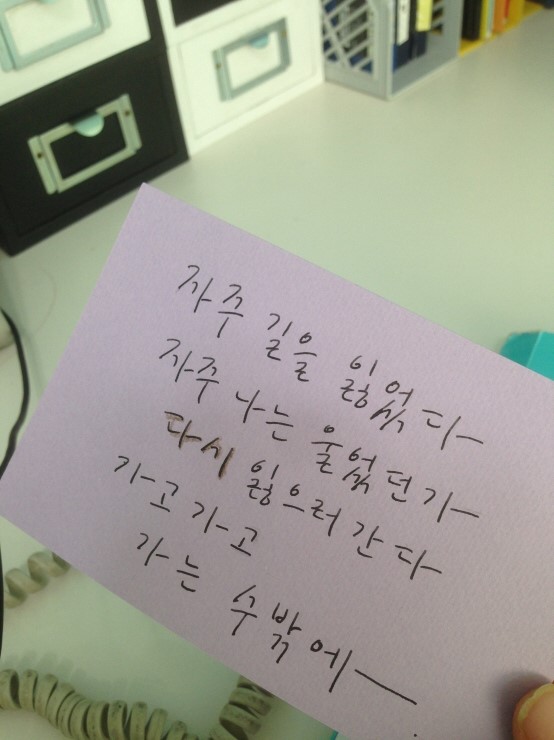 자주 길을 잃었다
자주 나는 울었던가
다시 잃으러 간다
가고 가고
가는 수밖에 —